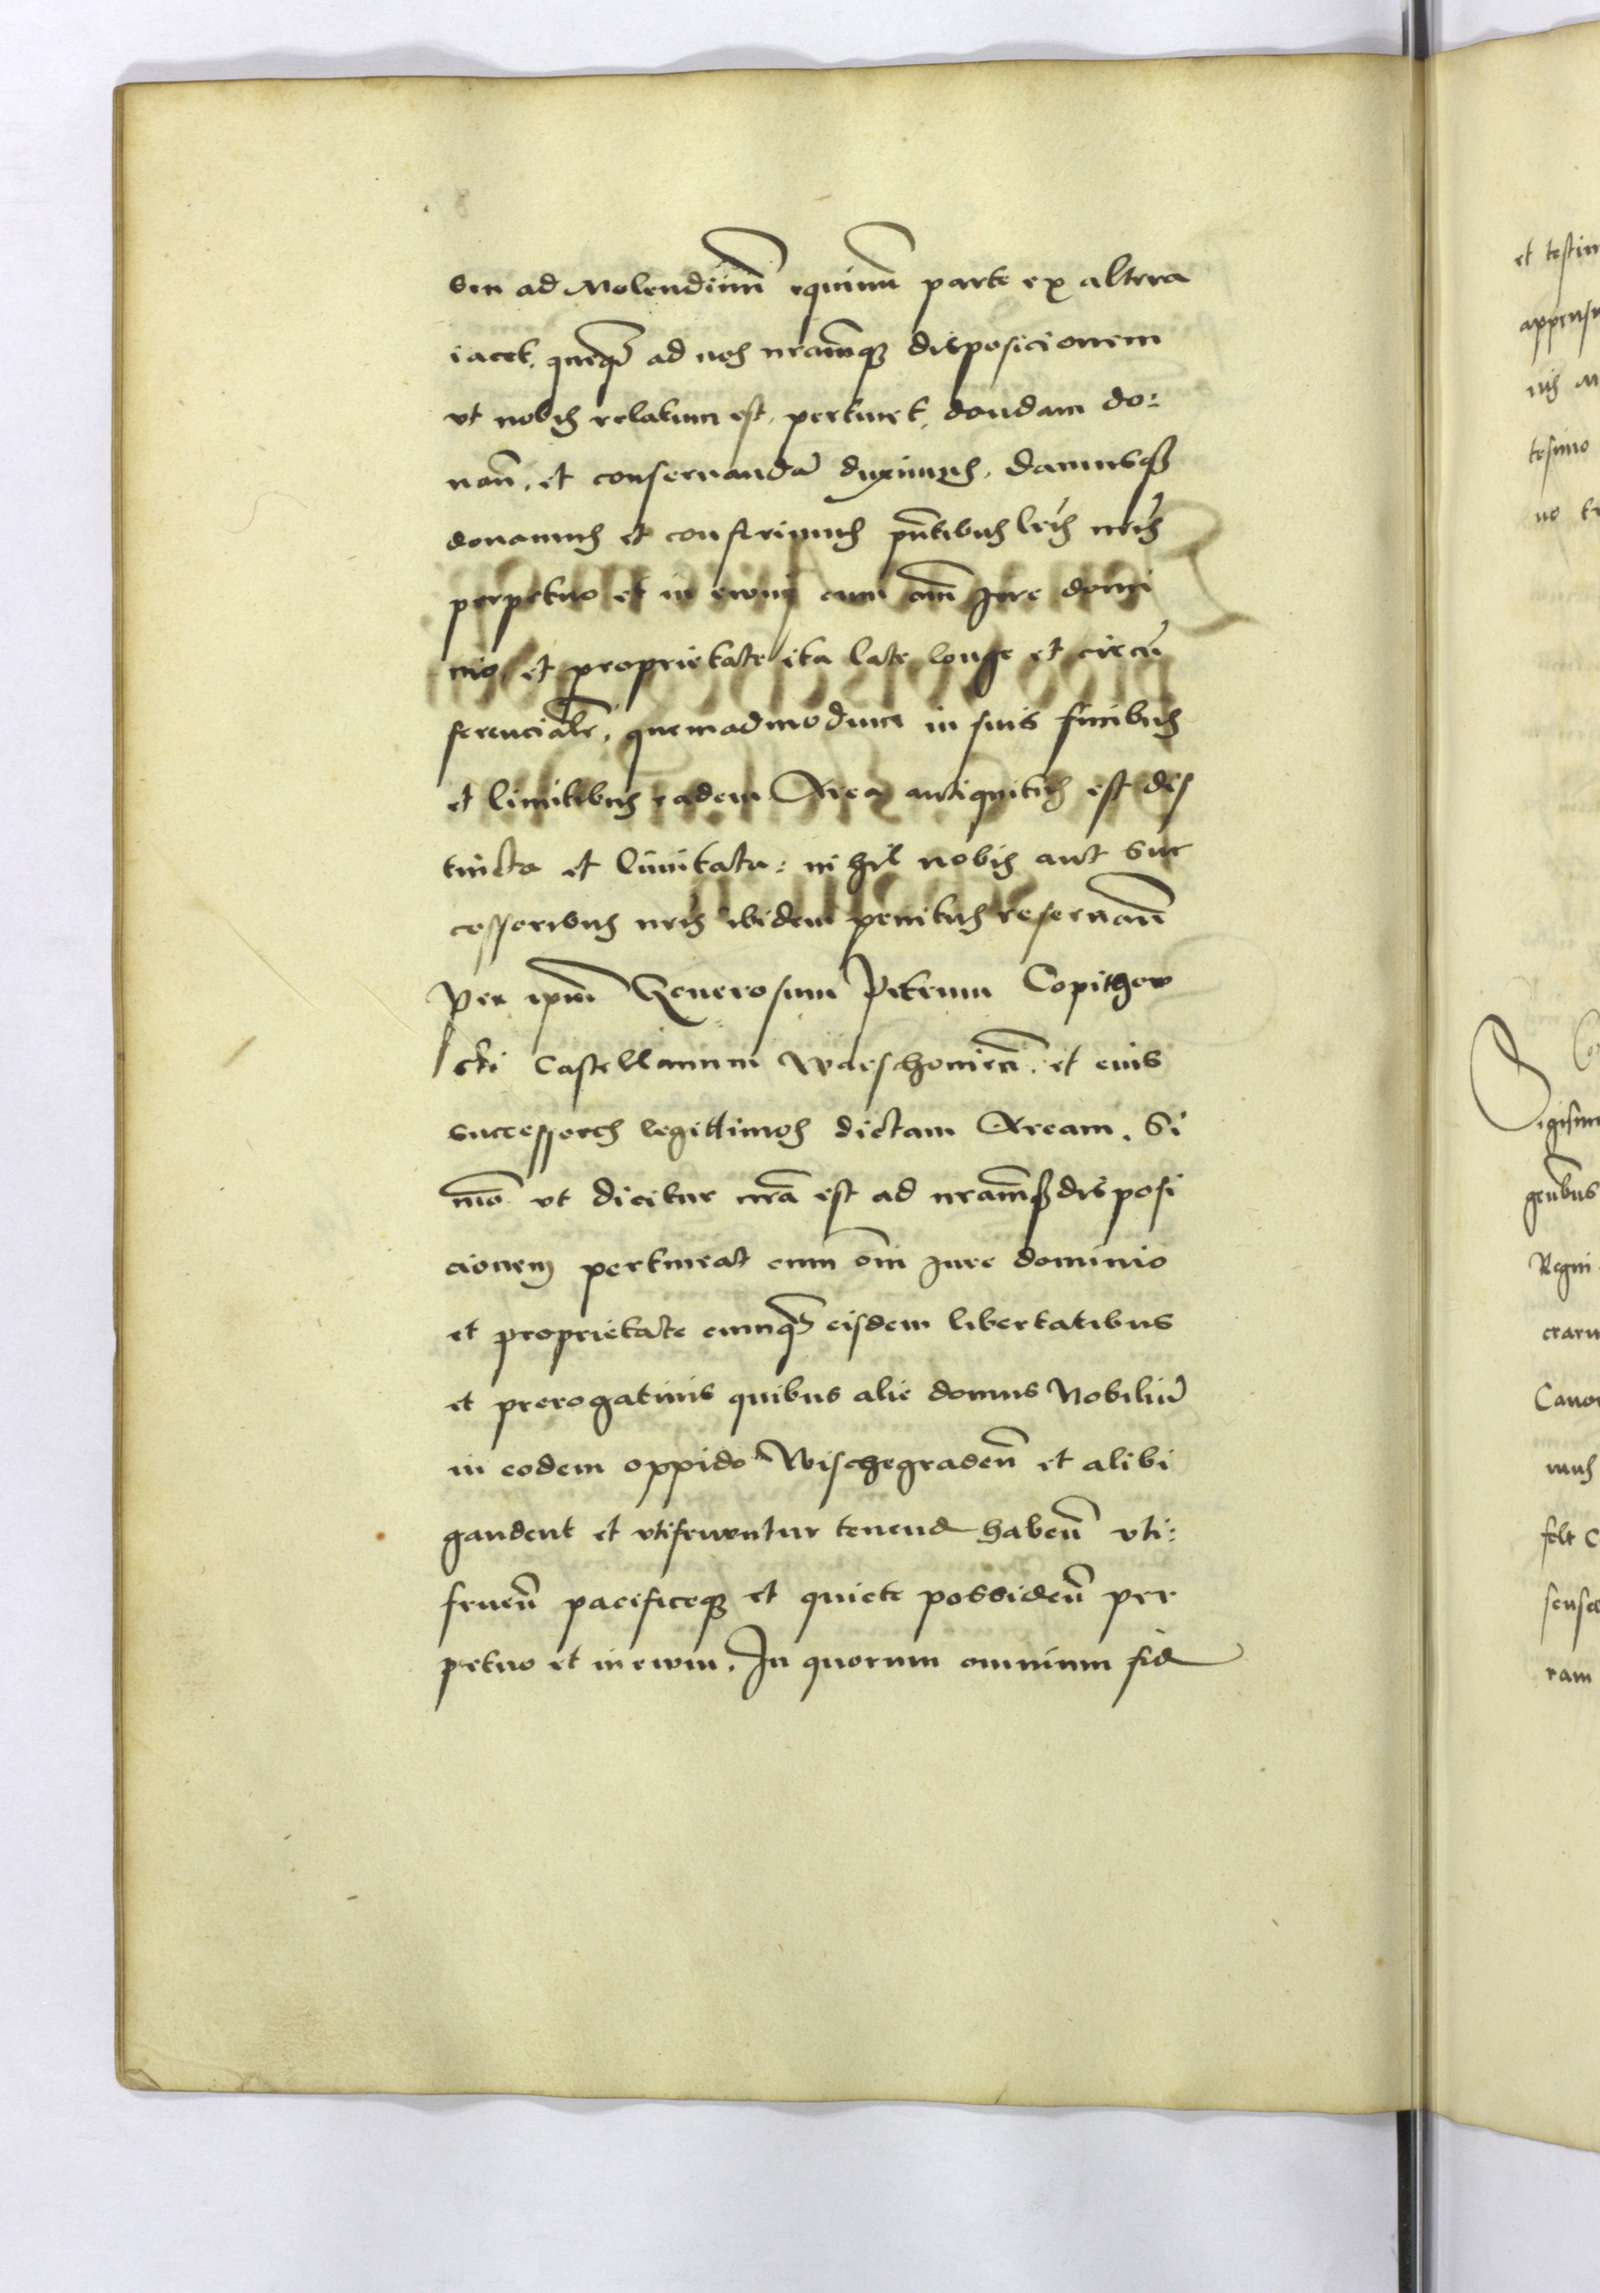 seu ad Molendinũ equinũ parte ex altera
iacet, queq̃ ad nos nrãmq3 disposicionem
vt nobis relatum est, pertinet, dandam do:
nañ, et conseruandã duximus, Damusq3
donamus et conferimus pñtibus lris nris
perpetuo et in ewũ cum om̃i Jure domi
nio et proprietate ita late longe et circũ
ferencialr̃, quemadmodum in suis finibus
et limitibus eadem Area antiquitus est dis
tincta et limitata: nihil nobis aut suc
cessoribus nris ibidem penitus reseruañ
Per ipm̃ Generosum Petrum Copithow
ski Castellanum Warschouieñ, et eius
successores legittimos dictam Aream, Si
mõ vt dicitur nrã est ad nrãmq3 disposi
cionem pertineat cum om̃i Jure dominio
et proprietate cumq3 eisdem libertatibus
et prerogatiuis quibus alie domus Nobiliũ
in eodem oppido Wischegradeñ et alibi
gaudent et vtifruuntur tenend habeñ vti:
frueñ pacificeq3 et quiete possideñ per
petuo et in ewũ. In quorum omnium fid
et testim
appensu
nis M
tesimo
no te
Sigism
genibus
Regni
crarum
Canon
mus
felt C
sensa
ram